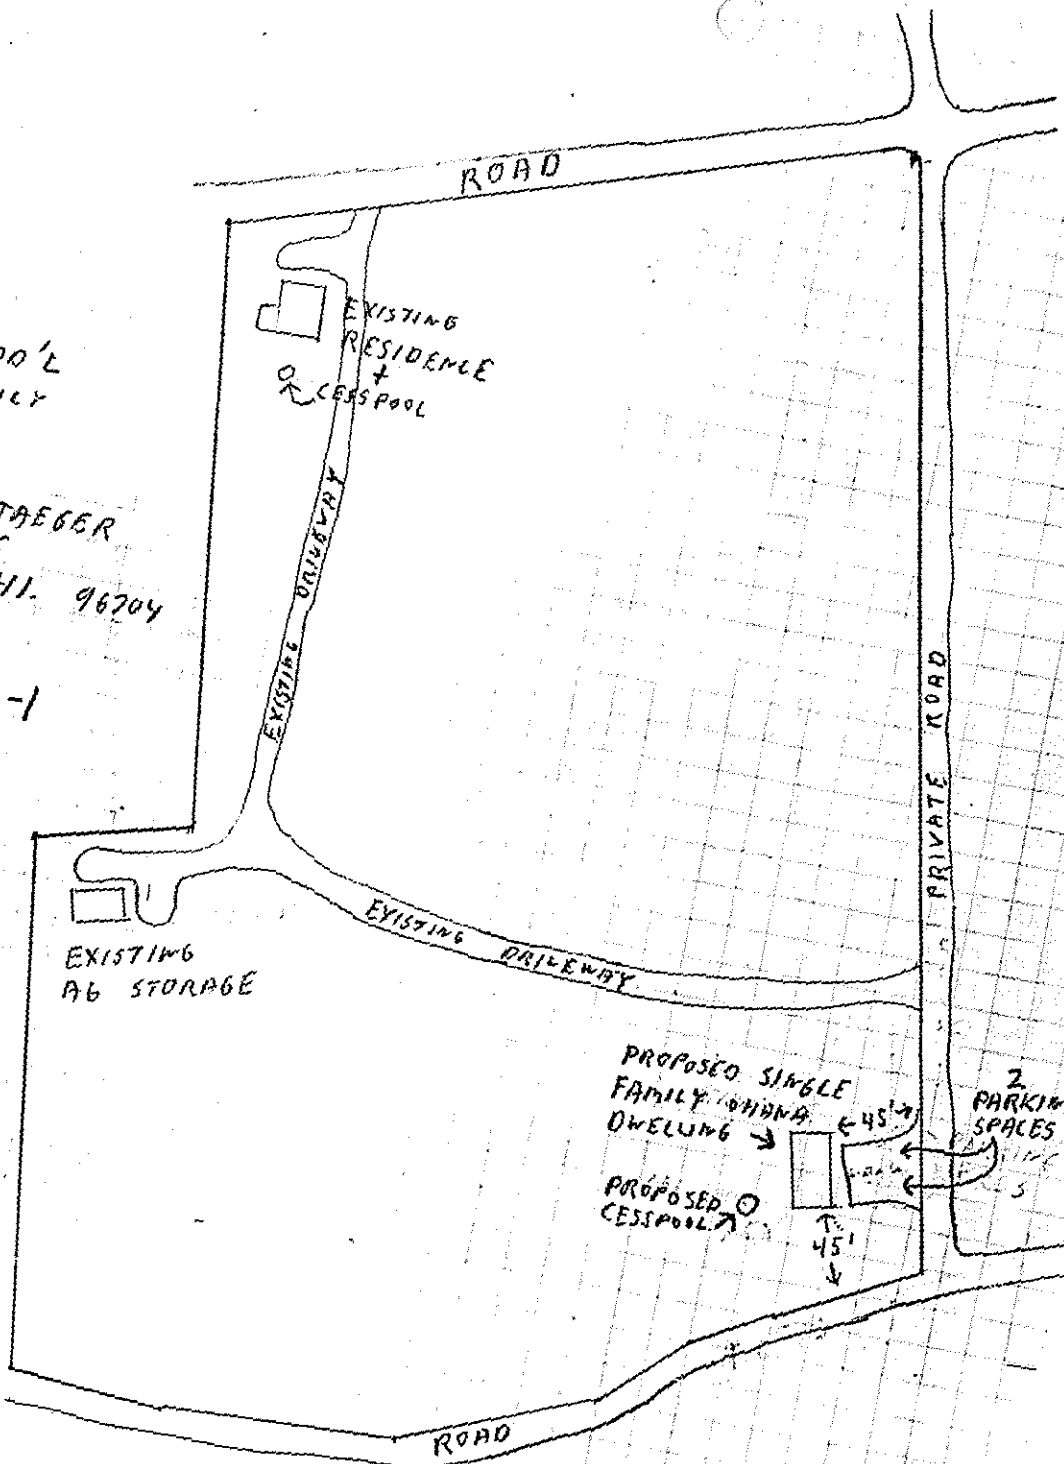 ROAD
EXISTING
RESIDENCE
+
CESSPOOL
DD'L
TAEGER
HI. 96704
-1
EXISTING DRIVEWAY
PRIVATE ROAD
EXISTING DRIVEWAY
EXISTING
AG STORAGE
PROPOSED SINGLE
FAMILY OHANA
DWELLING
45'
2
PARKIN
SPACES
PROPOSED
CESSPOOL
45'
ROAD